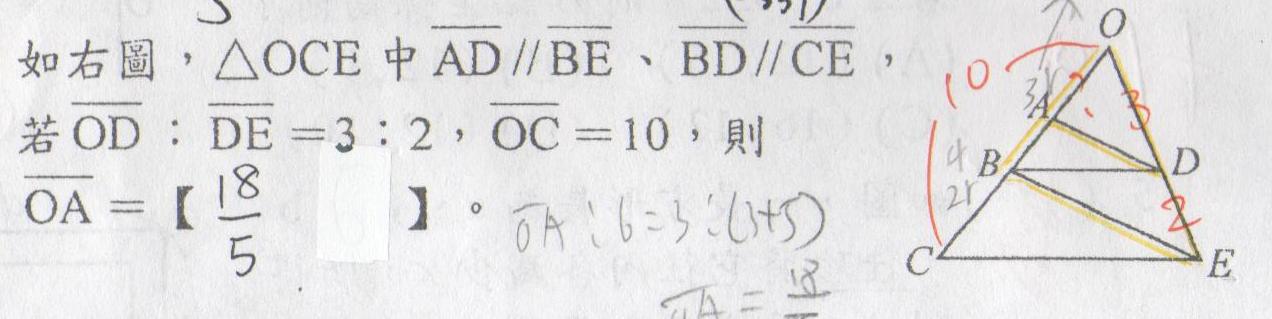 如右圖，△OCE 中 AD // BE、BD // CE，
若 OD：DE＝3：2，OC＝10，則
OA＝【 18/5 】。
OA : 6 = 3 : (3+5)
OA = 18
O
10
3r
A
3
4
B
D
2r
2
C
E